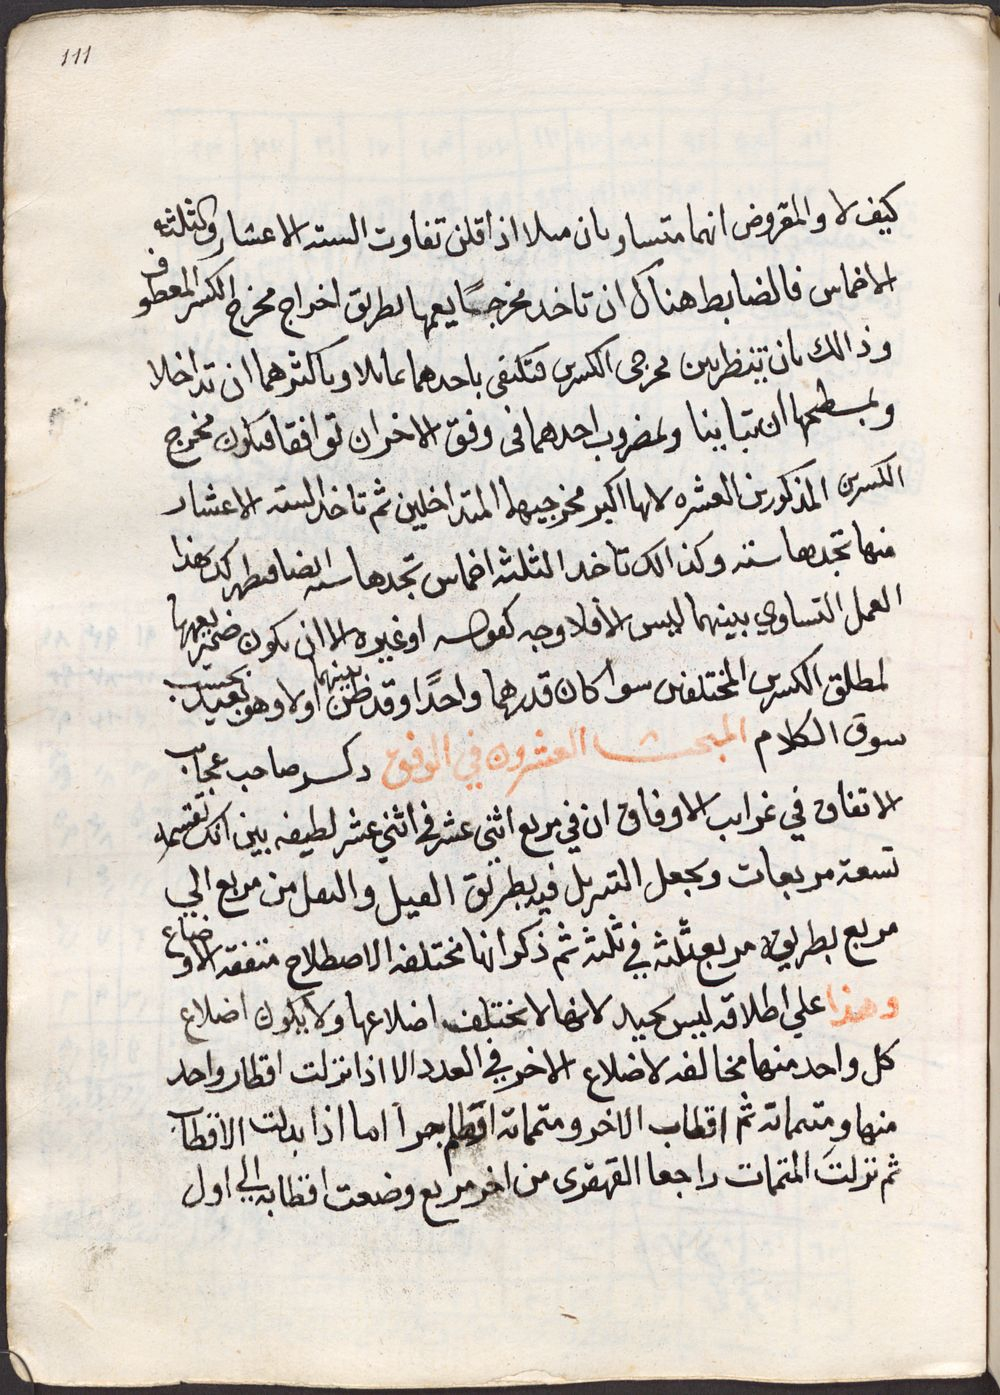 111
كيف لا والمقروض انهما متساويان مثلا اذا قلن تفاوت الستة الاعشار والثلثة
الاخماس فالضابط هناك ان تاخد مخرجًا يعمها بطريق اخراج مخرج الكسر المعطوف
وذالك بان تنظر بين مخرجى الكسرين فتكتفى باحدهما تماثلا وباكثرهما ان تداخلا
وبمسطحهما ان تباينا وبمضروب احدهما فى وفق الاخر ان توافقا فيكون مخرج
الكسرين المذكورين العشره لانها اكبر مخرجيهما المتداخلين ثم تاخد الستة الاعشار
منها تجدها ستة وكذالك تاخد الثلثة اخماس تجدها ستة ايضا فيظهر لك بهذا
العمل التساوي بينهما ليس الا فلا وجه كقوله اوغيره الا ان يكون ضمير يعمها
لمطلق الكسرين المختلفين سوا كان قدرهما واحدًا وقد ظن بينهما اولا وهو بعيد بحسب
سوق الكلام المبحث العشرون في الوفق دكر صاحب عجايب
الاتفاق في غرايب الاوفاق ان في مربع اثني عشر في اثني عشر لطيفه بين انك تقسمه
تسعة مربعات وتجعل التنزيل فيه بطريق الفيل والنقل من مربع الي
مربع بطريق مربع ثلثه في ثلثه ثم ذكر انها مختلفة الاصطلاح متفقة الاوضاع
وهذا علي اطلاقه ليس بجيد لانها لا تختلف اضلاعها ولا يكون اضلاع
كل واحد منها مخالفه لاضلاع الاخر في العدد الا اذا نزلت اقطار واحد
منها ومتمماته ثم اقطاب الاخر ومتمماته اقطا جرا اما اذا بدلت الاقطاب
ثم نزلت المتممات راجعا القهقرى من اخر مربع وضعت اقطابه الي اول